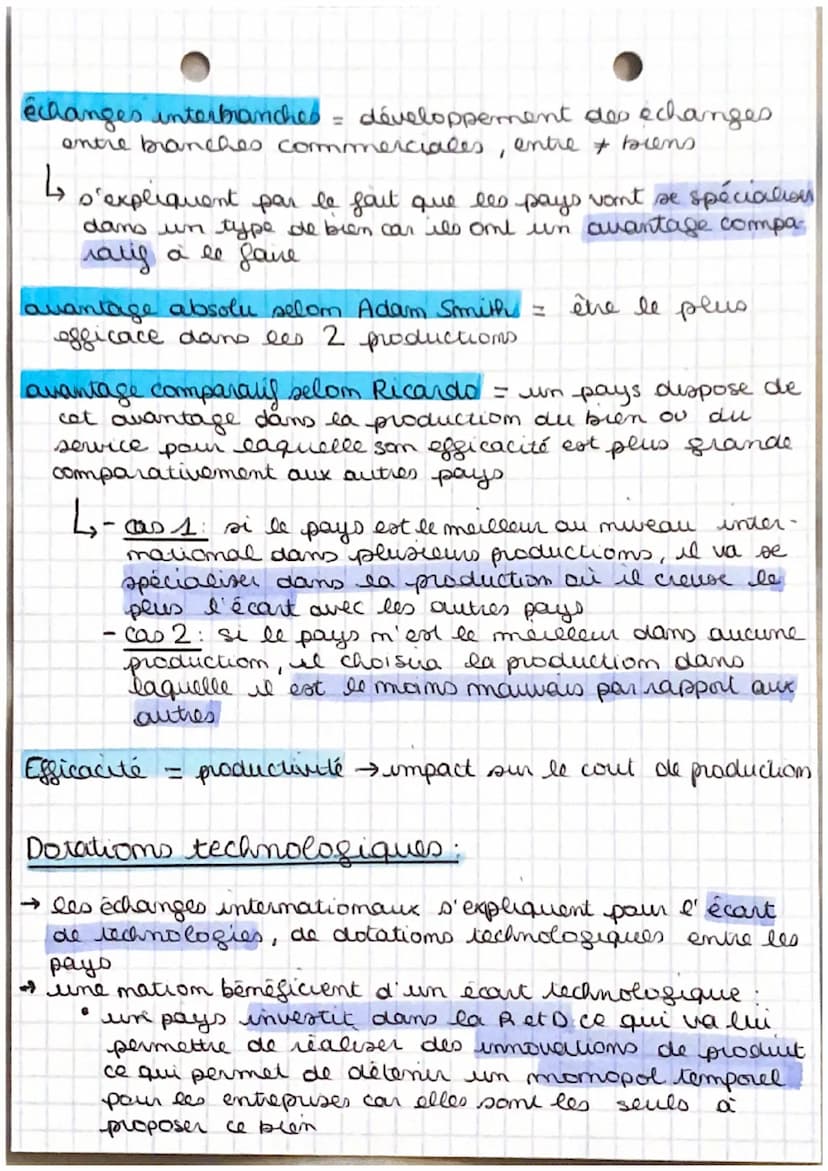 échanges interbranches = développement des échanges
entre branches commerciales, entre ≠ biens
↳ s'expliquent par le fait que les pays vont se spécialiser
dans un type de bien car ils ont un avantage compa-
ratif à le faire
avantage absolu selon Adam Smith = être le plus
efficace dans les 2 productions
avantage comparatif selon Ricardo = un pays dispose de
cet avantage dans la production du bien ou du
service pour laquelle son efficacité est plus grande
comparativement aux autres pays
↳ - cas 1 : si le pays est le meilleur au niveau inter-
national dans plusieurs productions, il va se
spécialiser dans la production où il creuse le
plus l'écart avec les autres pays
- cas 2 : si le pays n'est le meilleur dans aucune
production, il choisira la production dans
laquelle il est le moins mauvais par rapport aux
autres
Efficacité = productivité → impact sur le cout de production
Dotations technologiques :
→ les échanges internationaux s'expliquent pour l'écart
de technologies, de dotations technologiques entre les
pays
→ une nation bénéficient d'un écart technologique :
• un pays investit dans la R et D ce qui va lui
permettre de réaliser des innovations de produit
ce qui permet de détenir un monopol temporel
pour les entreprises car elles sont les seuls à
proposer ce bien